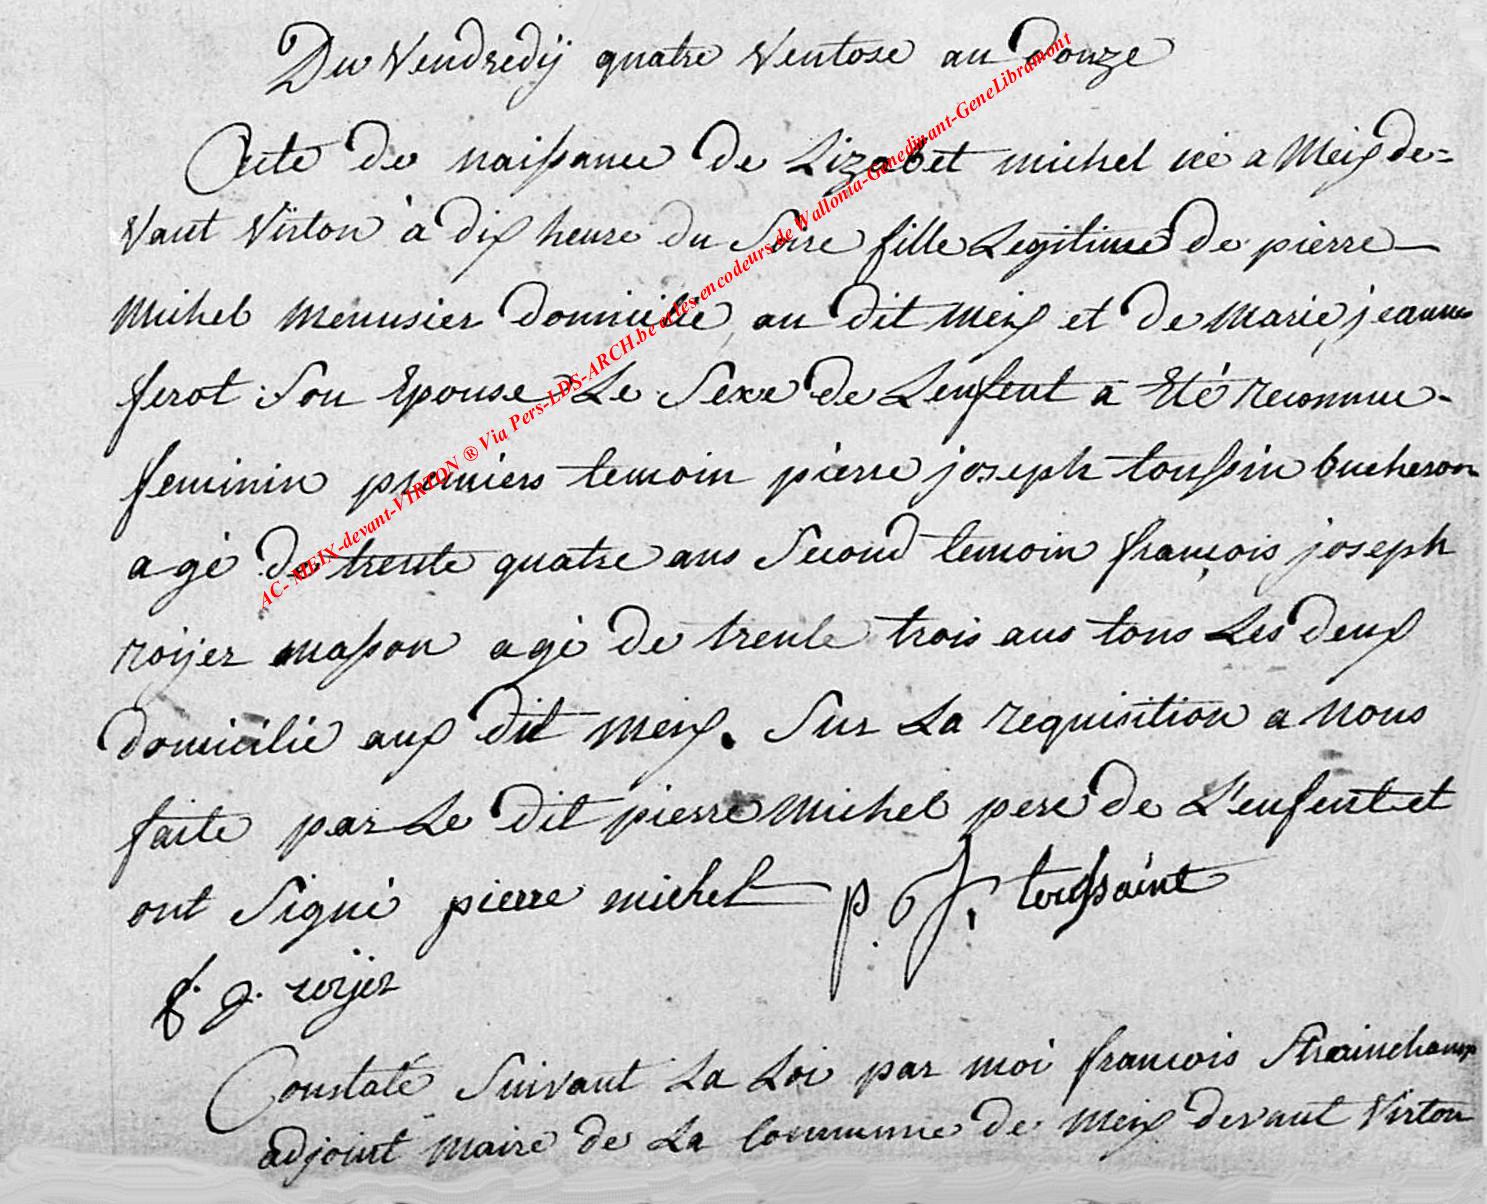 Du Vendredÿ quatre Ventose an Douze
Acte de naissance de Lizabet michel né a Meix de=
vant Virton à dix heure du Soire fille Legitime de pierre
Michel menusier domicillié au dit meix et de marie jeanne
ferot Son Epouse Le Sexe de Lenfent a Eté reconnue
feminin premiers temoin pierre joseph toussin bucheron
agé de trente quatre ans Second temoin françois joseph
roÿer masson agé de trente trois ans tous Les deux
domicilié aux dit meix. Sur La requisition a nous
faite par Le dit pierre Michel pere de L'enfent et
ont Signé pierre michel p. J. toussaint
f. j. roÿer
Constaté Suivant La Loi par moi francois Strainchamp
adjoint maire de La Commune de Meix devant Virton
AC- MEIX-devant-VIRTON ® Via Pers-LDS-ARCH.be et les encodeurs de Wallonia-Genedinant-GeneLibramont